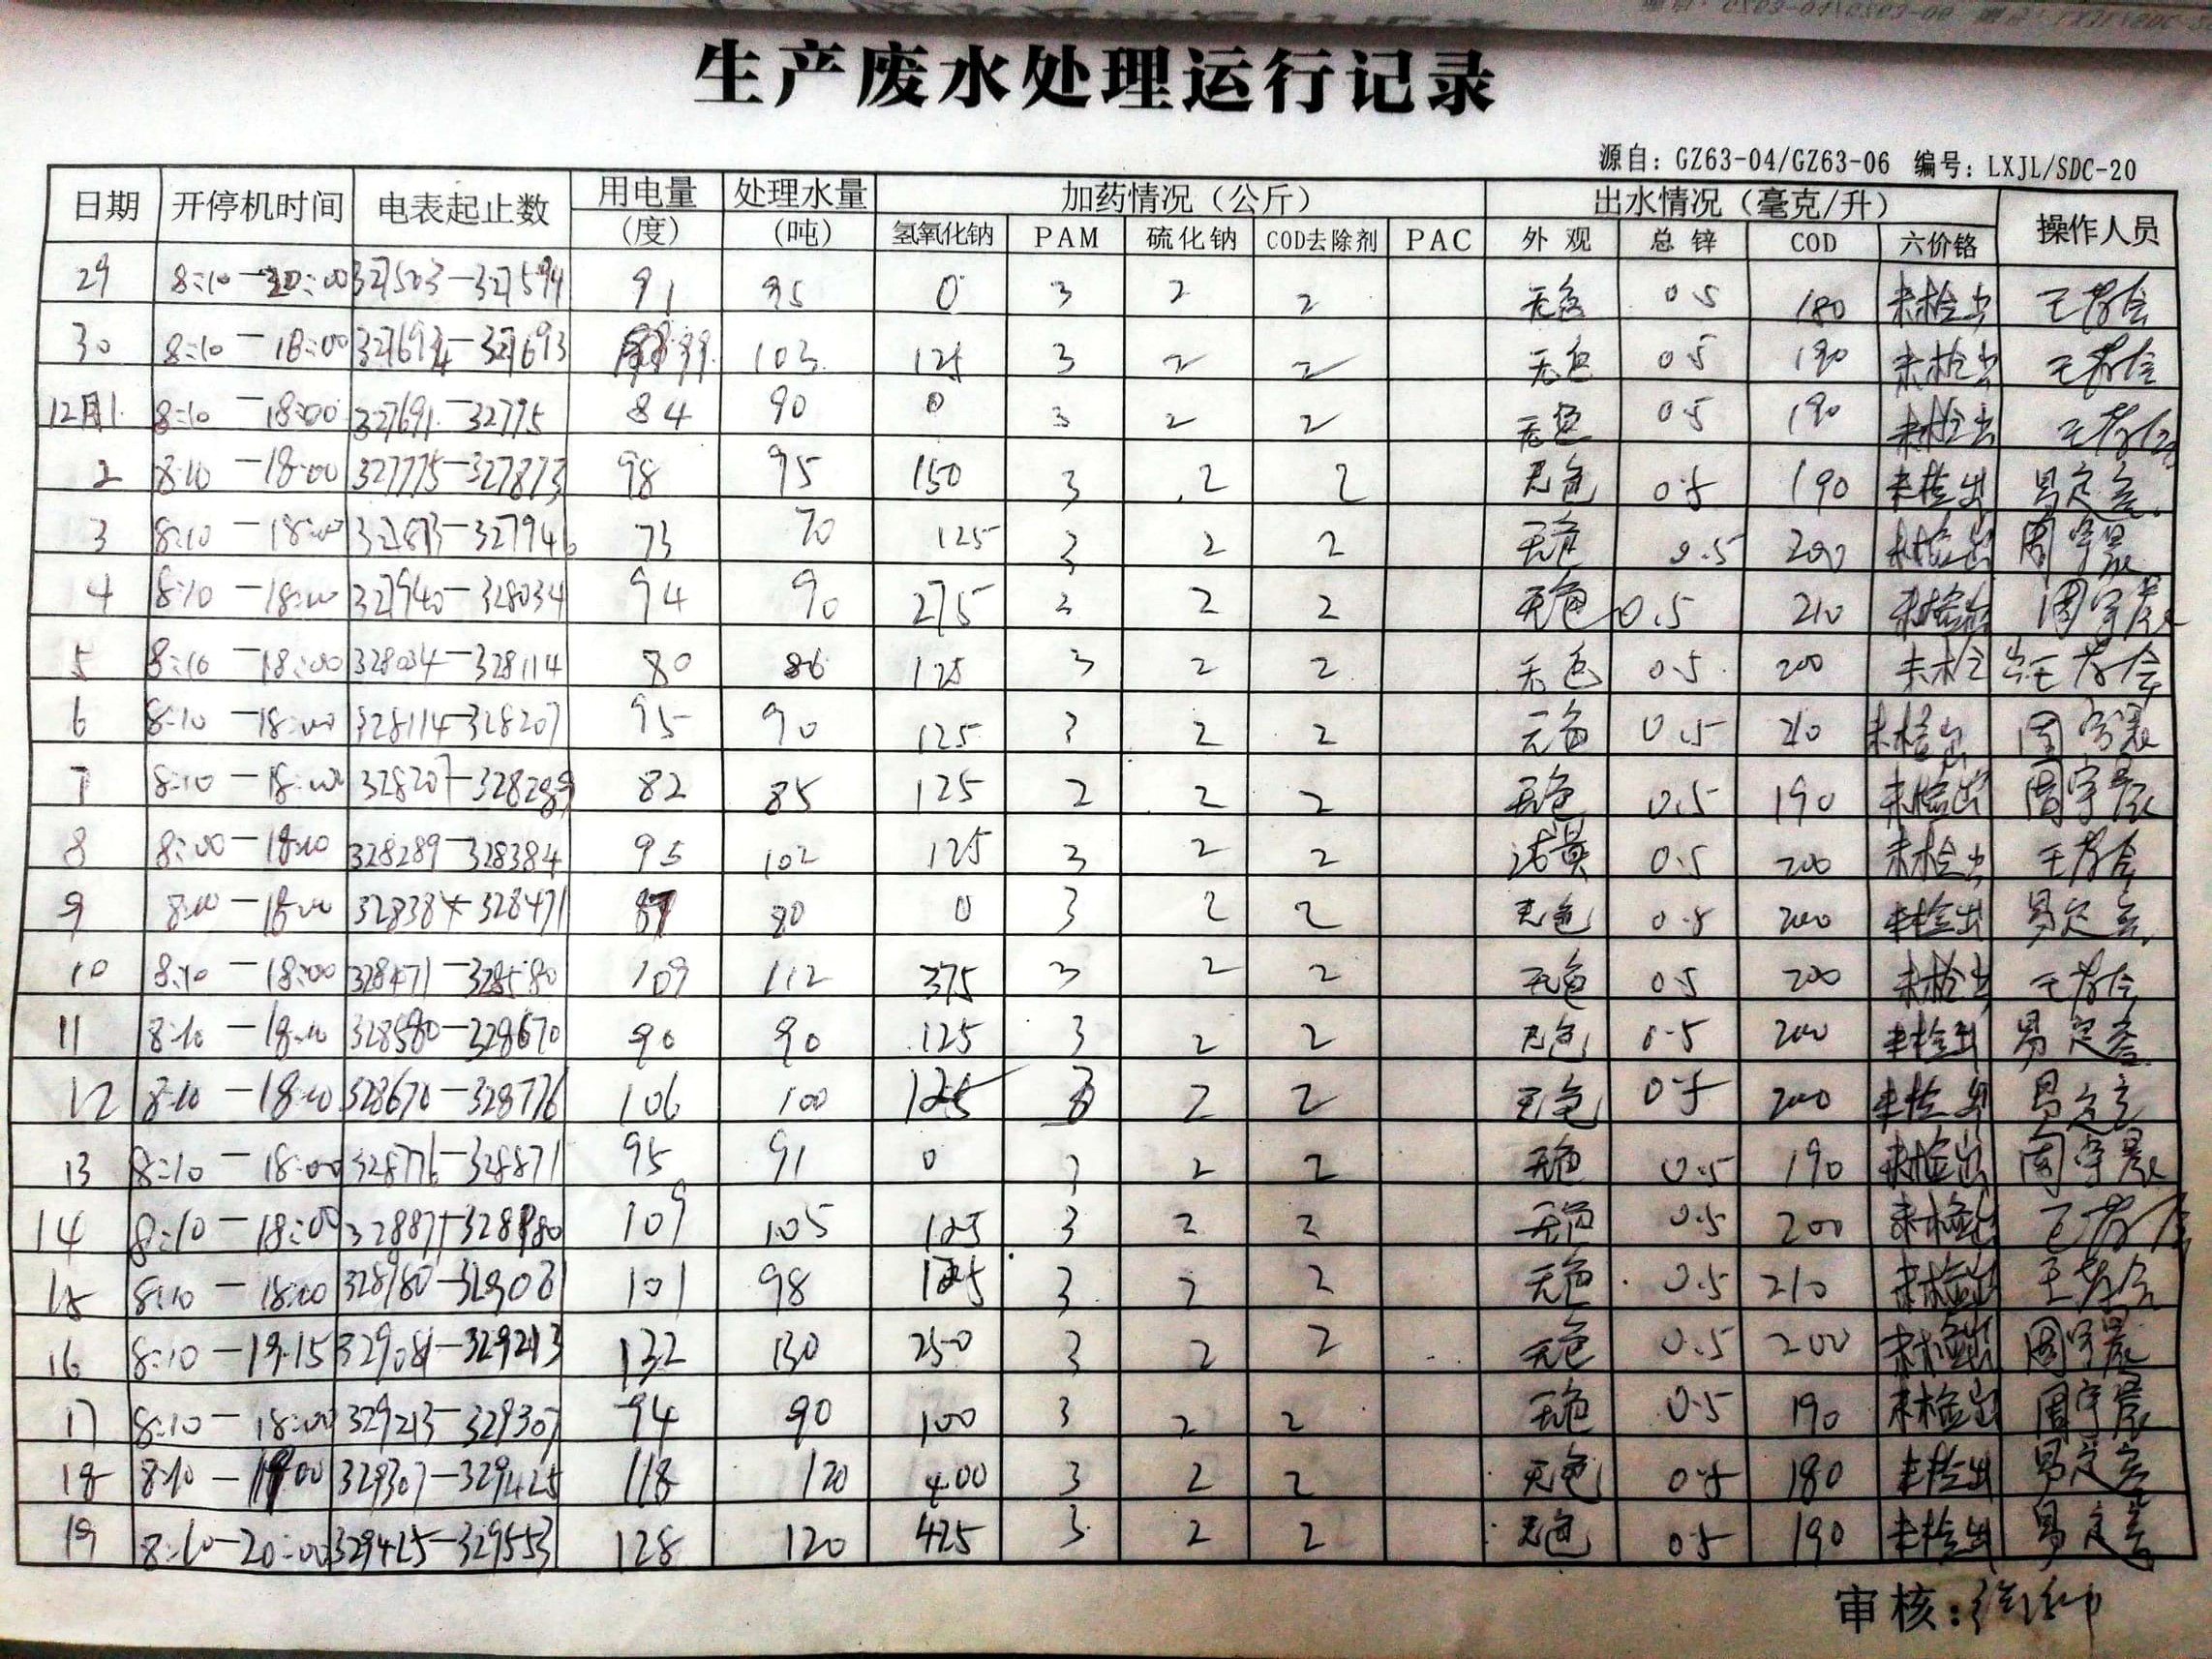 生产废水处理运行记录
源自：GZ63-04/GZ63-06 编号：LXJL/SDC-20
日期 开停机时间 电表起止数 用电量（度） 处理水量（吨） 加药情况（公斤） 出水情况（毫克/升） 操作人员
氢氧化钠 PAM 硫化钠 COD去除剂 PAC 外观 总锌 COD 六价铬
29 8:10-20:00 327503-327594 91 95 0 3 2 2 无色 0.5 180 未检出
30 8:10-18:00 99 103 125 3 2 2 无色 0.5 190 未检出
12月1 8:10-18:00 327691-32775 84 90 0 3 2 2 无色 0.5 190 未检出
2 8:10-18:00 327775-327873 98 95 150 3 2 2 无色 0.5 190 未检出
3 8:10-18:00 73 70 125 3 2 2 无色 0.5 200 未检出 周宇晨
4 8:10-18:00 327940-328034 94 90 275 3 2 2 无色 0.5 210 未检出 周宇晨
5 8:10-18:00 328034-328114 80 86 125 3 2 2 无色 0.5 200 未检出
6 8:10-18:00 328114-328207 95 90 125 3 2 2 无色 0.5 210 未检出 周宇晨
7 8:10-18:00 328207-328289 82 85 125 2 2 2 无色 0.5 190 未检出 周宇晨
8 8:00-18:10 328289-328384 95 102 125 3 2 2 0.5 200 未检出
9 8:10-18:00 328384-328471 87 80 0 3 2 2 无色 0.5 200 未检出
10 8:10-18:00 328471-328580 109 112 375 3 2 2 无色 0.5 200 未检出
11 8:10-18:10 328580-328670 90 90 125 3 2 2 无色 0.5 200 未检出
12 8:10-18:10 328670-328776 106 100 125 3 2 2 无色 0.5 200 未检出
13 8:10-18:00 328776-328871 95 91 0 3 2 2 无色 0.5 190 未检出 周宇晨
14 8:10-18:00 328871-328980 109 105 125 3 2 2 无色 0.5 200 未检出
15 8:10-18:00 328980-329081 101 98 125 3 2 2 无色 0.5 210 未检出
16 8:10-19:15 329081-329213 132 130 250 3 2 2 无色 0.5 200 未检出 周宇晨
17 8:10-18:00 329213-329307 94 90 100 3 2 2 无色 0.5 190 未检出 周宇晨
18 8:10-19:00 329307-329425 118 120 400 3 2 2 无色 0.5 180 未检出
19 8:10-20:00 329425-329553 128 120 425 3 2 2 无色 0.5 190 未检出
审核：